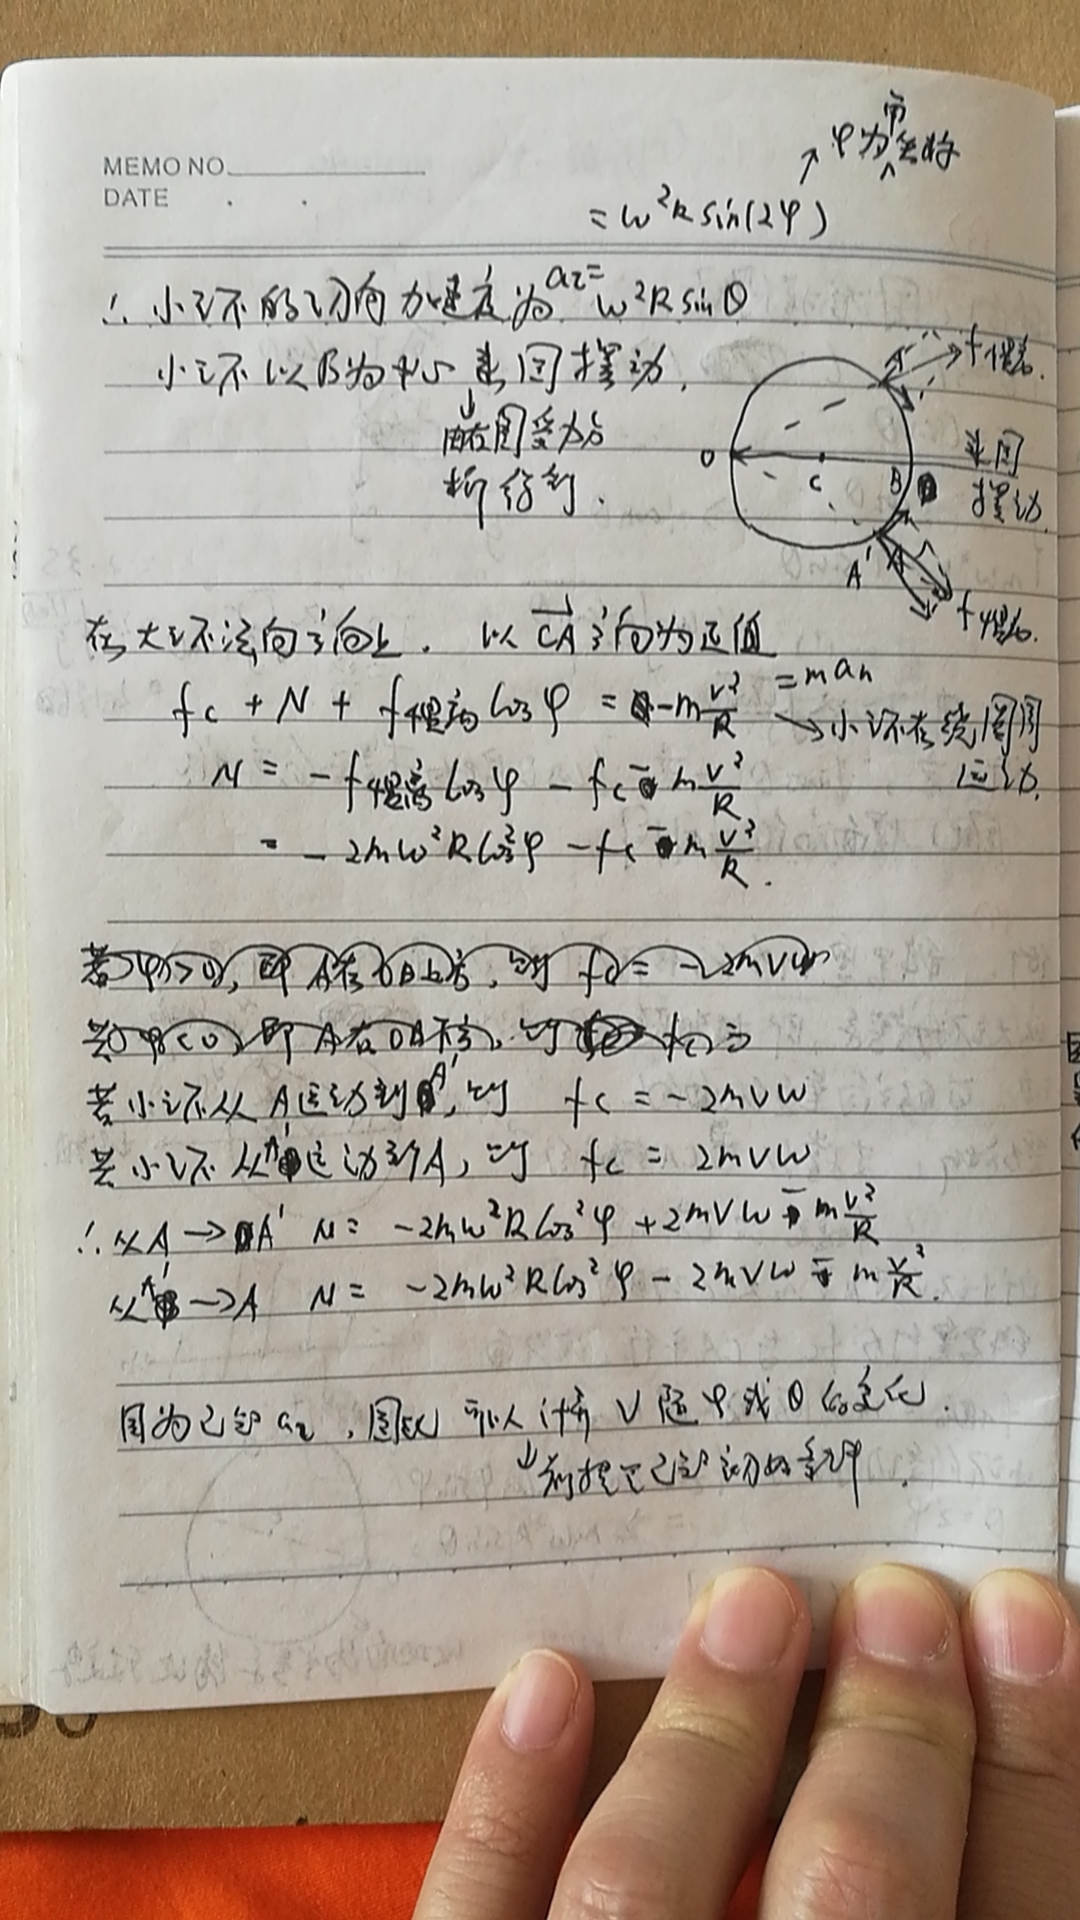 MEMO NO.
DATE . .
↗ φ为
= ω²R sin(2φ)
∴ 小环的切向加速度为 aτ= ω²R sinθ
小环以B为中心来回摆动.
↓
由右图受力分
析得到.
A
f惯离.
O
C
B
来回
摆动.
A'
f惯离.
在大环法向方向上. 以 CA 方向为正值
fc + N + f惯离 cosφ = -m v²/R = man
→小环在绕圆周
运动.
N = -f惯离 cosφ - fc - m v²/R
= -2mω²R cos²φ - fc - m v²/R.
若小环从A运动到A', 则 fc = -2mvω
若小环从A'运动到A, 则 fc = 2mvω
∴ 从A→A' N = -2mω²R cos²φ + 2mvω - m v²/R
从A'→A N = -2mω²R cos²φ - 2mvω - m v²/R.
因为已知aτ, 因此可以计算 v 随φ或θ的变化.
↓前提是已知初始条件.